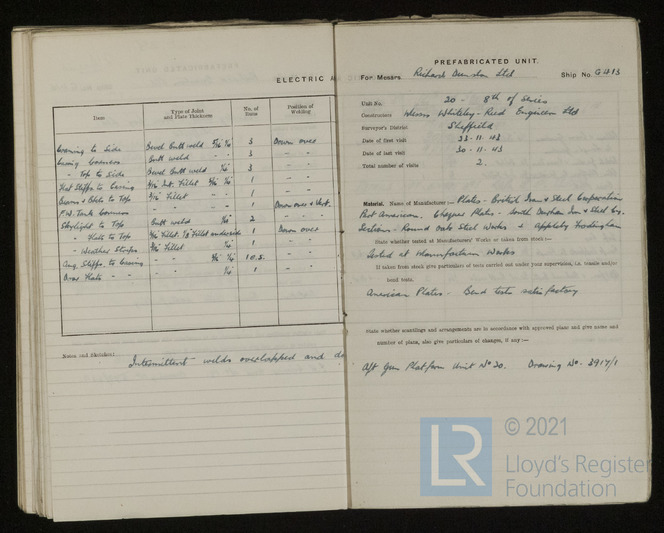 ELECTRIC A
Item
Type of Joint
and Plate Thickness
No. of
Runs
Position of
Welding
Casing to Side Bevel Butt weld 3 Down over
Casing Corners Butt weld - 3 " "
" Top to Side Bevel Butt weld 3 " "
Flat Stiffs. to Casing Int. Fillet 1 " "
Beams & Bkts to Top Fillet 1 " "
F.W. Tank Corners " - 1 Down over & Vert.
Skylight to Top Butt weld 2 " "
" Flats to Top Fillet. Fillet underside 1 Down over
" Weather Strips Fillet 1 " "
Ang. Stiffs. to Casing " " 1 O.S. " "
Door Flats " " " 1 " "
Notes and Sketches:
Intermittent welds overlapped and
PREFABRICATED UNIT.
For Messrs. Richard Dunston Ltd Ship No. G413
Unit No. 20 - 8th of Series
Constructors Messrs Whiteley-Reed Engineers Ltd
Surveyor's District Sheffield
Date of first visit 23-11-43
Date of last visit 30-11-43
Total number of visits 2.
Material. Name of Manufacturer:— Plates - British Iron & Steel Corporation
Port American. Chequer Plates - South Durham Iron & Steel Co.
Sections - Round Oak Steel Works & Appleby Frodingham
State whether tested at Manufacturers' Works or taken from stock:—
Tested at Manufacturers Works
If taken from stock give particulars of tests carried out under your supervision, i.e. tensile and/or
bend tests.
American Plates - Bend tests satisfactory
State whether scantlings and arrangements are in accordance with approved plans and give name and
number of plans, also give particulars of changes, if any:—
Aft Gun Platform Unit No 20. Drawing No. 3917/1
LR
© 2021
Lloyd's Register
Foundation